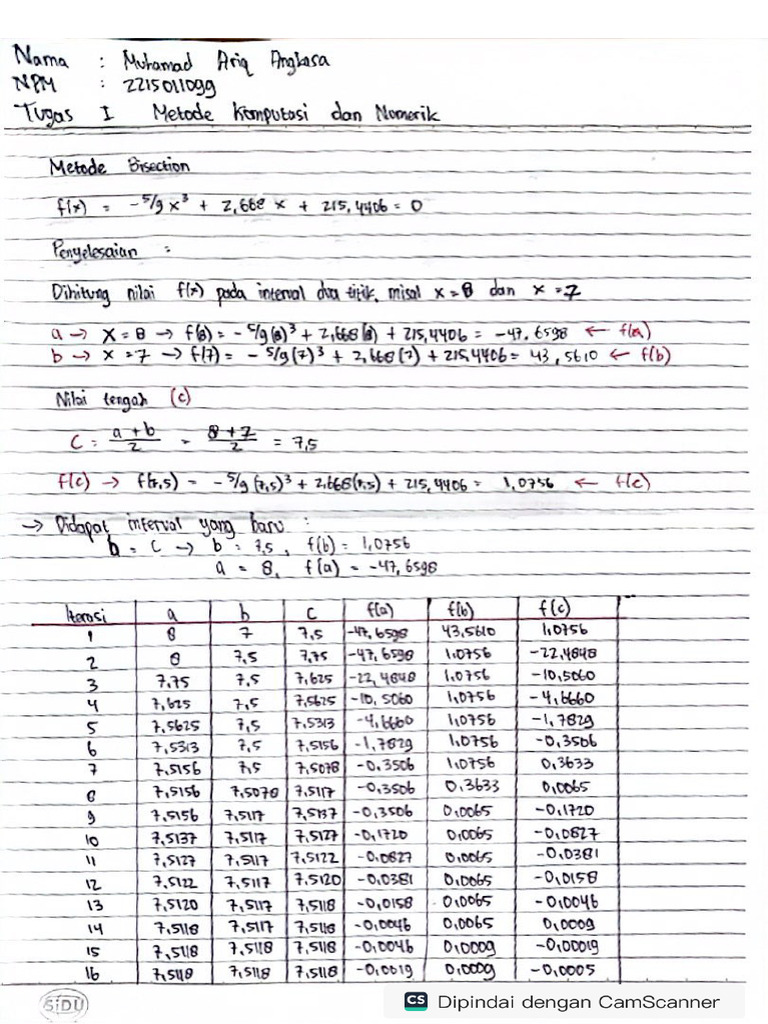 Nama : Muhamad Ariq Angkasa
NPM : 2215011099
Tugas I Metode Komputasi dan Numerik
Metode Bisection
f(x) = -5/9 x³ + 2,668 x + 215,4406 = 0
Penyelesaian :
Dihitung nilai f(x) pada interval dua titik, misal x = 8 dan x = 7
a → x = 8 → f(8) = -5/9(8)³ + 2,668(8) + 215,4406 = -47,6598 ← f(a)
b → x = 7 → f(7) = -5/9(7)³ + 2,668(7) + 215,4406 = 43,5610 ← f(b)
Nilai tengah (c)
c = a + b / 2 = 8 + 7 / 2 = 7,5
f(c) → f(7,5) = -5/9(7,5)³ + 2,668(7,5) + 215,4406 = 1,0756 ← f(c)
→ Didapat interval yang baru :
b = c → b = 7,5, f(b) = 1,0756
a = 8, f(a) = -47,6598
Iterasi a b c f(a) f(b) f(c)
1 8 7 7,5 -47,6598 43,5610 1,0756
2 8 7,5 7,75 -47,6598 1,0756 -22,4848
3 7,75 7,5 7,625 -22,4848 1,0756 -10,5060
4 7,625 7,5 7,5625 -10,5060 1,0756 -4,6660
5 7,5625 7,5 7,5313 -4,6660 1,0756 -1,7829
6 7,5313 7,5 7,5156 -1,7829 1,0756 -0,3506
7 7,5156 7,5 7,5078 -0,3506 1,0756 0,3633
8 7,5156 7,5078 7,5117 -0,3506 0,3633 0,0065
9 7,5156 7,5117 7,5137 -0,3506 0,0065 -0,1720
10 7,5137 7,5117 7,5127 -0,1720 0,0065 -0,0827
11 7,5127 7,5117 7,5122 -0,0827 0,0065 -0,0381
12 7,5122 7,5117 7,5120 -0,0381 0,0065 -0,0158
13 7,5120 7,5117 7,5118 -0,0158 0,0065 -0,0046
14 7,5118 7,5117 7,5118 -0,0046 0,0065 0,0009
15 7,5118 7,5118 7,5118 -0,0046 0,0009 -0,00019
16 7,5118 7,5118 7,5118 -0,0019 0,0009 -0,0005
SiDU
CS Dipindai dengan CamScanner